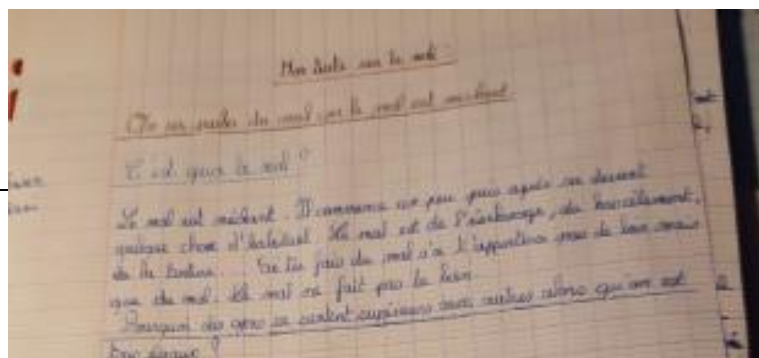 Mon texte sur le mal
On va parler du mal car le mal est méchant.
C'est quoi le mal ?
Le mal est méchant. Il commence un peu puis après ça devient
quelque chose d'habituel. Le mal est de l'esclavage, du harcèlement,
de la torture... Si tu fais du mal ça t'apportera pas de bien mais
que du mal. Le mal ne fait pas le bien
Pourquoi des gens se sentent supérieurs aux autres alors qu'on est
tous égaux ?